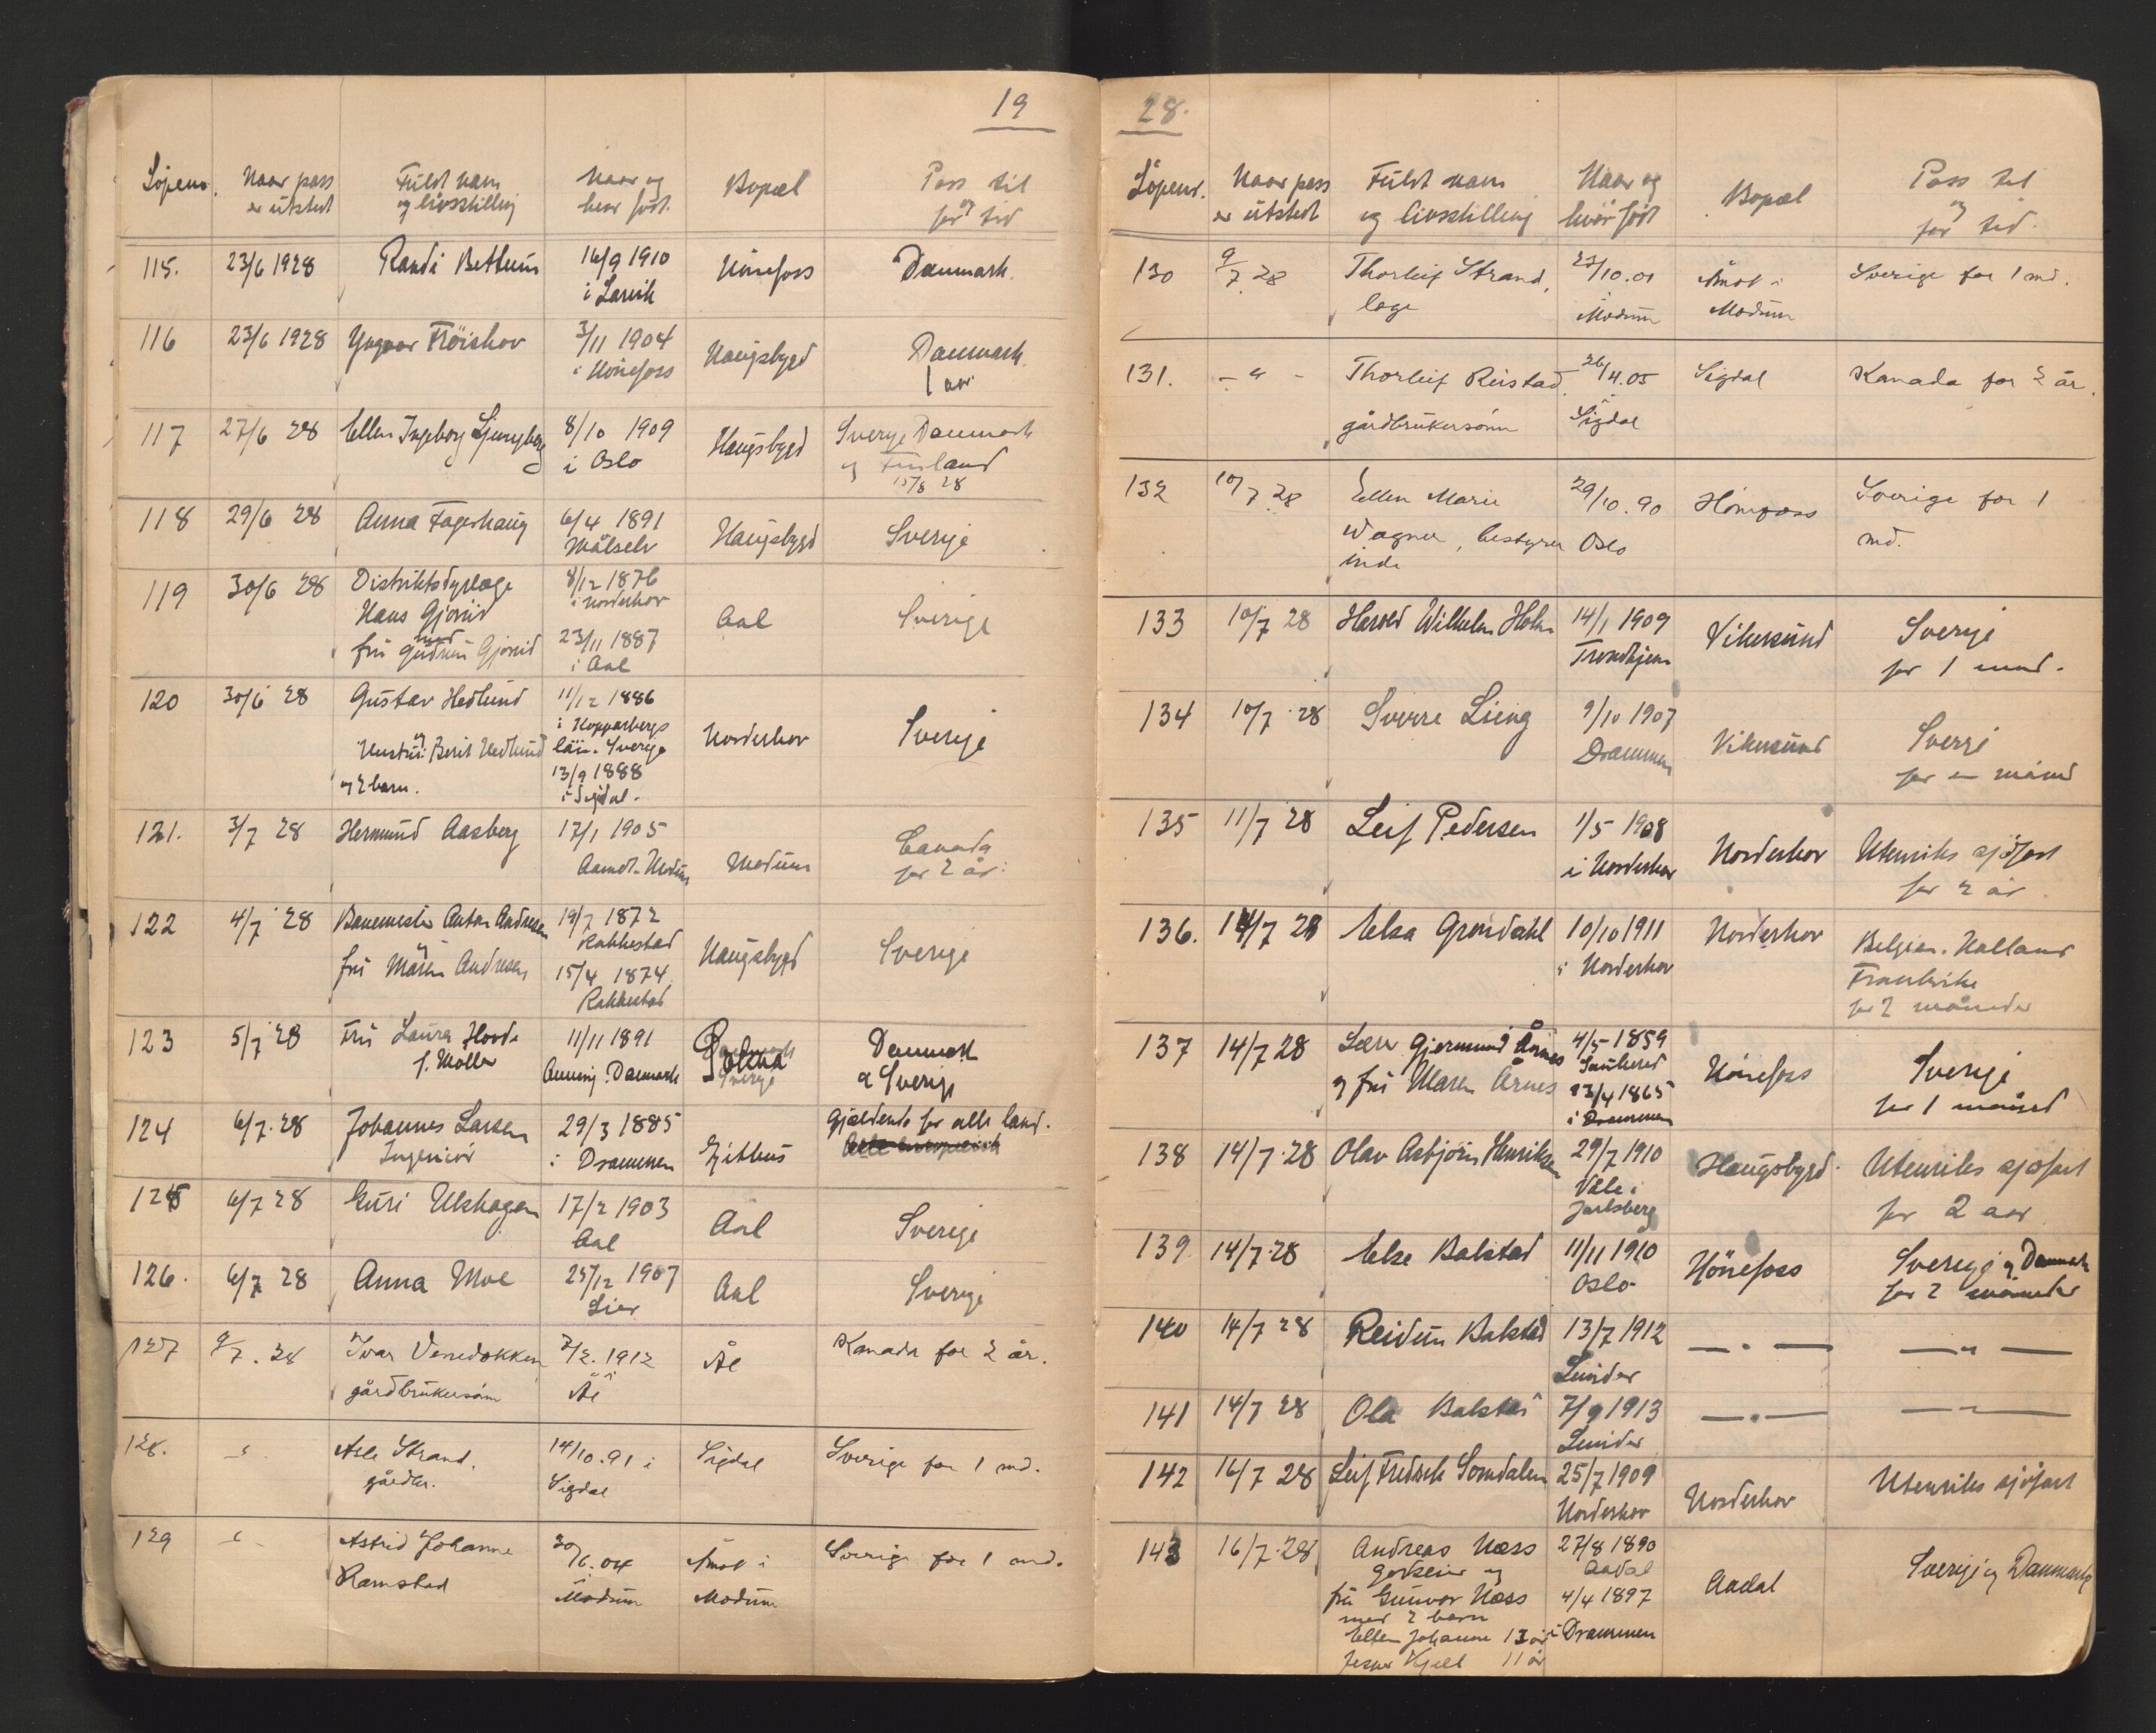 19
Løpenr. Naar pass er utstedt Fuldt navn og livsstilling Naar og hvor født. Bopæl Pass til og for tid
115. 23/6 1928 Randi Bettum 16/9 1910 Hønefoss Danmark.
i Larvik
116 23/6 1928 Yngvar Frøishov 3/11 1904 Haugsbygd Danmark
i Hønefoss 1 aar
117 27/6 28 Ellen Ingeborg Ljungberg 8/10 1909 Haugsbygd Sverge Danmark
i Oslo og Finland
15/8 28
118 29/6 28 Anna Fagerhaug 6/4 1891 Haugsbygd Sverige
Målselv
119 30/6 28 Distriktsdyrlæge 8/12 1876 Aal Sverige
Hans Gjør­ud i Norderhov
med
fru Gudrun 23/11 1887
i Aal
120 30/6 28 Gustav Hedlund 11/12 1886 Norderhov Sverige
og i Kopparbergs
Hustru: Berit Hedlund län. Sverge
og 2 barn. 13/9 1888
i Sigdal.
121. 3/7 28 Hermund Aasberg 17/1 1905 Modum Canada
Aamot. Modum for 2 år.
122 4/7 28 Banemester Anton Andresen 19/7 1872 Haugsbygd Sverige
og Rakkestad
fru Maren Andresen 15/4 1874
Rakkestad
123 5/7 28 Fru Laura 11/11 1891 Danmark
f. Møller Danmark & Sverige
124 6/7 28 Johannes Larsen 29/3 1885 Gjithus Gjældende for alle land.
Ingeniør i Drammen
125 6/7 28 Guri Ulshagen 17/2 1903 Aal Sverige
Aal
126. 6/7 28 Anna Moe 25/12 1907 Aal Sverige
Lier
127 9/7. 28 Ivar Venedokken 1912 Ål Kanada for 2 år.
gårdbrukersøn Ål
128. - " - Asle Strand, 14/10.91 i Sigdal Sverige for 1 md.
gårdbr. Sigdal
129 - " - Astrid Johanne 30/6.04 Åmot i Sverige for 1 md.
Ramstad Modum Modum
28.
Løpenr. Naar pass er utstedt Fuldt navn og livsstilling Naar og hvor født Bopæl Pass til og for tid.
130 9/7 28 Thorleif Strand, 23/10.01 Åmot i Sverige for 1 md.
læge Modum Modum
131. - " - Thorleif Reistad, 26/4.05 Sigdal Kanada for 2 år.
gårdbrukersønn Sigdal
132 10/7 28 Ellen Marie 29/10.90 Hønefoss Sverige for 1
Wagner, bestyrer Oslo md.
inde
133 10/7 28 Harold Wilhelm Holm 14/1 1909 Vikersund Sverge
Trondhjem for 1 mnd.
134 10/7 28 Sverre Lieng 9/10 1907 Vikersund Sverge
Drammen for en måned
135 11/7 28 Leif Pedersen 1/5 1908 Norderhov Utenriks sjøfart
i Norderhov for 2 år
136. 14/7 28 Elsa Grøndahl 10/10 1911 Norderhov Belgien. Holland
i Norderhov Frankrike
for 2 måneder
137 14/7 28 Lærer Gjermund Årnes 4/5 1859 Hønefoss Sverige
og fru Maren Årnes Sauherad for 1 måned
23/4 1865
i Drammen
138 14/7 28 Olav Asbjørn Henriksen 29/7 1910 Haugsbygd. Utenriks sjøfart
Våle i for 2 aar
Jarlsberg
139 14/7 28 Else Bakstad 11/11 1910 Hønefoss Sverige og Danmark
Oslo for 2 måneder
140 14/7 28 Reidun Bakstad 13/7 1912 — " — — " —
Lunder
141 14/7 28 Ola Bakstad 7/9 1913 — " — — " —
Lunder
142 16/7 28 Leif Fredrik Somdalen 25/7 1909 Norderhov Utenriks sjøfart
Norderhov
143 16/7 28 Andreas Næss 27/8 1890 Aadal Sverige og Danmark
godseier og Aadal
fru Gunvor Næss 4/4 1897
med 2 barn i Drammen
Ellen Johanne 13 år
Kjell 11 år